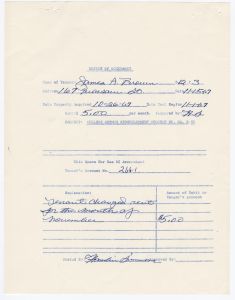 NOTICE OF ASSESSMENT
Name of Tenant James A. Brown D-3
Address 167 Munson St. Date 11-15-67
Date Property Acquired 10-26-67 Date Rent Begins 11-1-67
Rent 5.00 per month Prepared by
Project: COLLEGE AVENUE REDEVELOPMENT PROJECT NO.
This Space For Use Of Accountant
Tenant's Account No. 2641
Explanation: Amount of Debit to Tenant's Account
Tenant charged rent
for the month of
November $5.00
Posted by